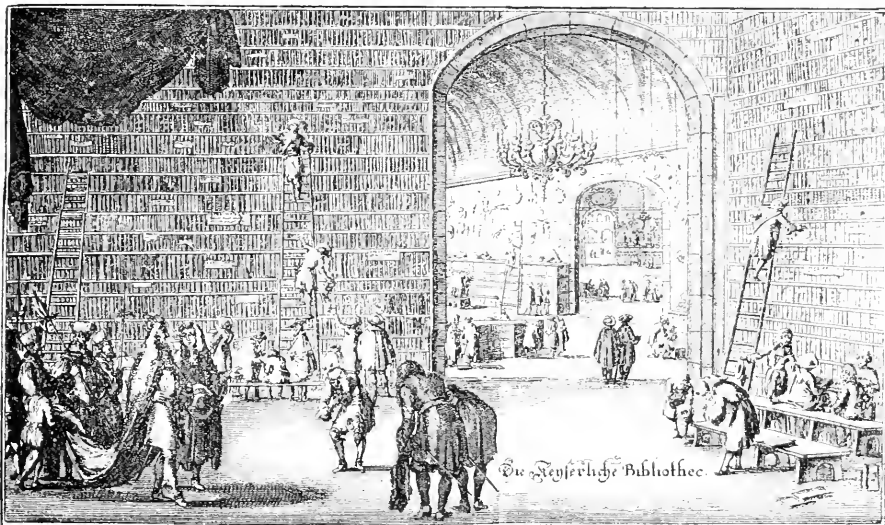 Die Keyserliche Bibliothec.